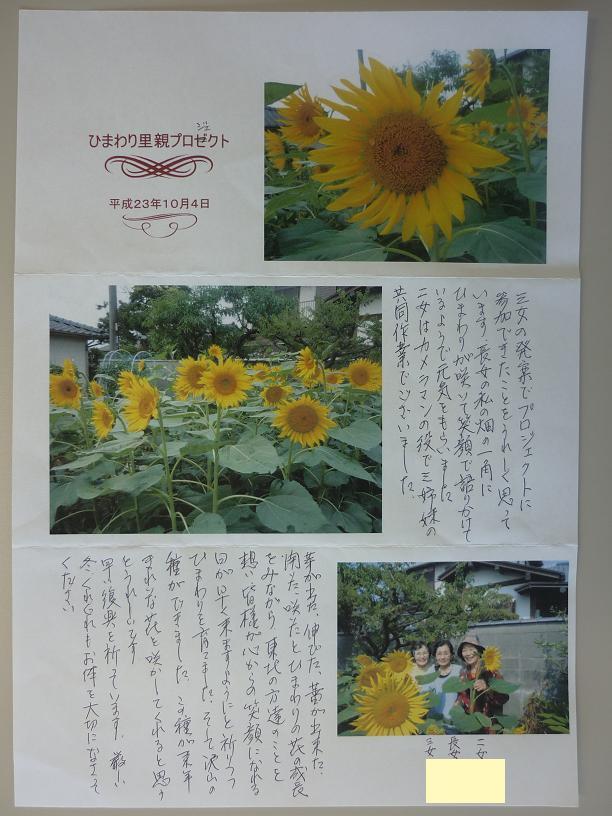 ひまわり里親プロゼクト
ジェ
平成23年10月4日
三女の発案でプロジェクトに
参加できたことをうれしく思って
います。長女の私の畑の一角に
ひまわりが咲いて笑顔で語りかけて
いるようで元気をもらいました。
二女はカメラマンの役で三姉妹の
共同作業でございました。
芽が出た、伸びた、蕾が出来た、
開いた、咲いたとひまわりの花の成長
をみながら、東北の方達のことを
想い皆様が心からの笑顔になれる
日が早く来ますようにと祈りつつ
ひまわりを育てました。そして沢山の
種ができました。この種が来年
きれいな花を咲かしてくれると思う
とうれしいです
早い復興を祈っています。厳しい
冬くれぐれもお体を大切になさって
ください
二女
長女
三女